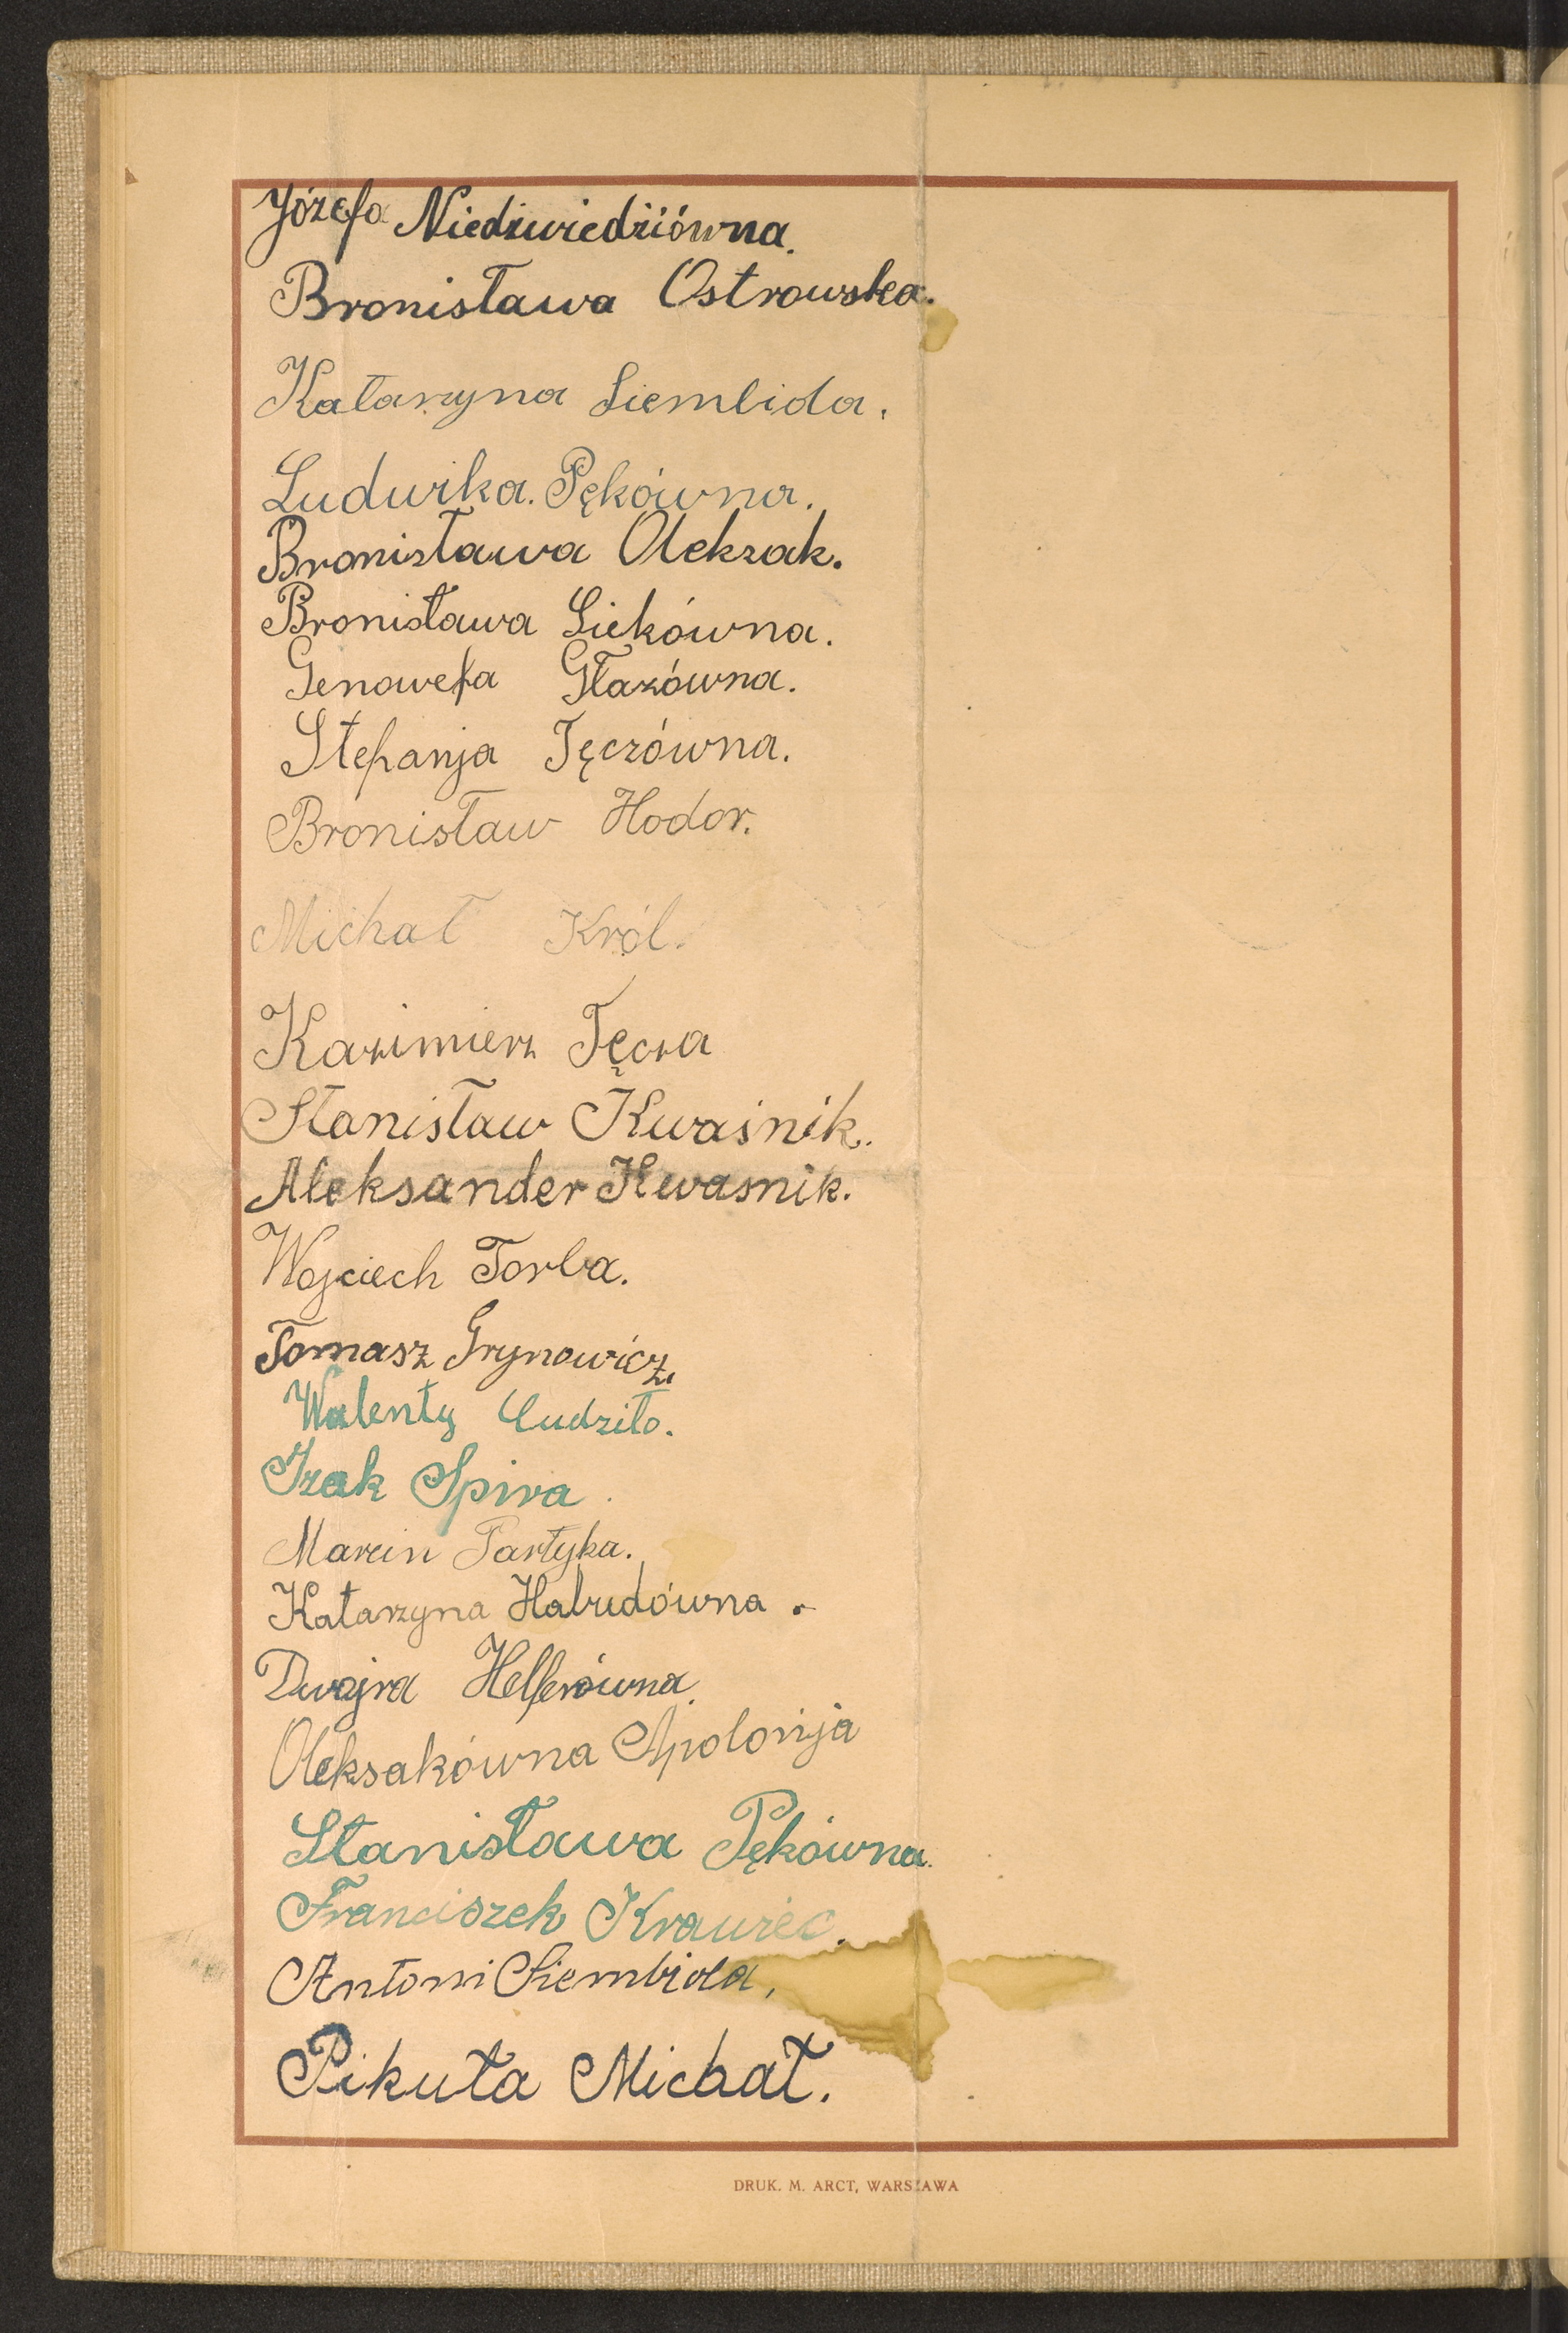 Józefa Niedźwiedziówna.
Bronisława Ostrowska.
Katarzyna Siembida.
Ludwika. Pękówna.
Bronisława Oleksak.
Bronisława Siekówna.
Genowefa Głazówna.
Stefanja Tęczówna.
Bronisław Hodor.
Michał Król.
Kazimierz Tęcza
Stanisław Kwaśnik.
Aleksander Kwasnik.
Wojciech Torba.
Tomasz Grynowicz.
Walenty Cudziło.
Izak Spira.
Marcin Partyka.
Katarzyna Habudówna.
Dwojra Helferówna.
Oleksakówna Apolonja
Stanisława Pękówna.
Franciszek Krawiec.
Antoni Siembida,
Pikuła Michał.
DRUK. M. ARCT, WARSZAWA